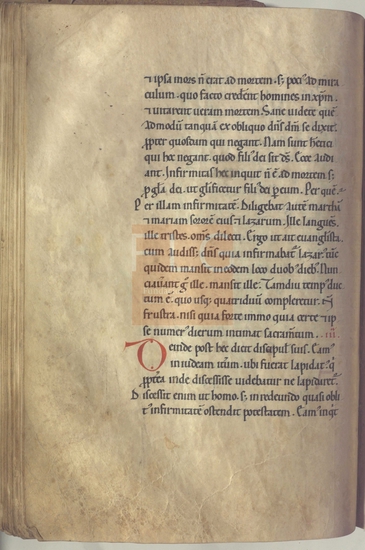 ⁊ ipsa mors n̄ erat ad mortem · s; poci᷒ ad mira
culum · quo facto credent homines in xp̄m ·
⁊ uitarent ueram mortem. Sane uidete quē
admodū tanquā ex obliquo dn̄s dm̄ se dixit ·
ꝓpter quosdam qui negant. Nam sunt heretici
qui hec negant · quod fili᷒ dei sit ds̄. Ecce audi
ant. Infirmitas hec inquit n̄ ē ad mortem s;
ꝓ gl̄a dei · ut glificetur fili᷒ dei ꝑ eum. Per quē ·
Per illam infirmitatē. Diligebat autē marthā
⁊ mariam sororē ei᷒ ⁊ lazarum. Ille languēs ·
ille tristes · om̄s dilecti. Ergo ut ait euanglista ·
cum audiss; dn̄s quia infirmabat᷑ lazar᷒ tūc
quidem mansit in eodem loco duob᷒ dieb᷒. Nun
ciauant g̊ ille · mansit ille. Tamdiu temp᷒ duc
tum ē · quo usq; quatriduū compleretur ·
frustra · nisi quia forte immo quia certe ⁊ ip
se numer᷒ dierum intimat sacram̄tum ·
Deinde post hec dicit discipul᷒ suis. Eam᷒
in iudeam itm̄ · ubi fuerat lapidat᷒ ·
ꝓpterea inde discessisse uidebatur ne lapidaret᷑ ·
Discessit enim ut homo · s; in redeundo quasi obli
t᷒ infirmitatē ostendit potestatem. Eam᷒ inq̇t